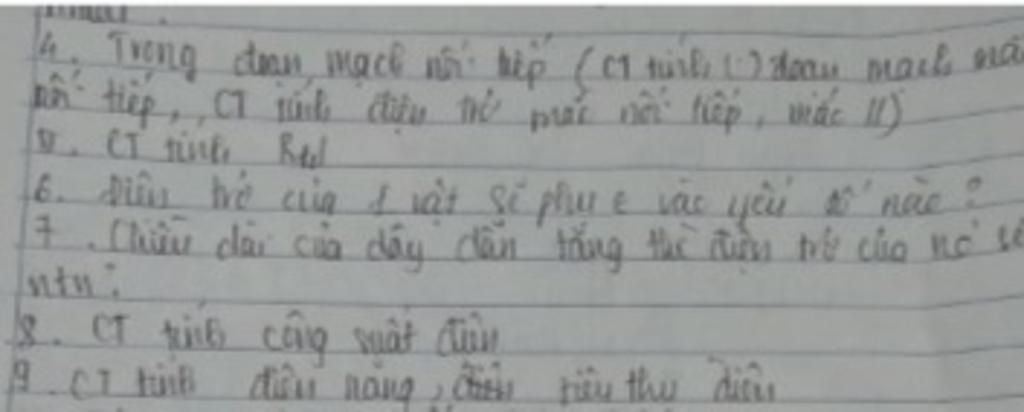 4. Trong đoạn mạch nối tiếp (CT tính, U) đoạn mạch mắ
nối tiếp, CT tính điện trở mắc nối tiếp, mắc //)
5. CT tính Rtđ
6. Điện trở của 1 vật sẽ phụ € vào yếu tố nào?
7. Chiều dài của dây dẫn tăng thì điện trở của nó sẽ
ntn?
8. CT tính công suất điện
9. CT tính điện năng, tiêu thụ điện